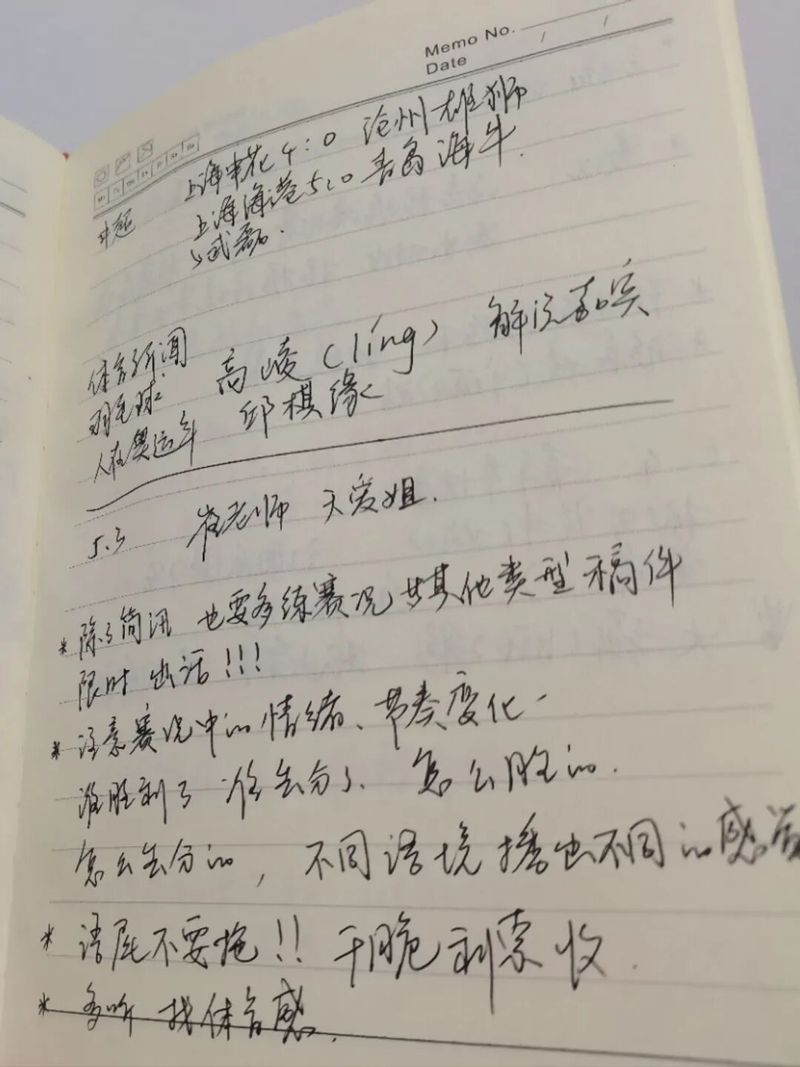 Memo No.
Date / /
上海申花 4:0 沧州雄狮
中超 上海海港 5:0 青岛海牛.
武磊.
体育新闻
羽毛球 高崚(líng) 解说嘉宾
人在奥运年 邱棋缘
5.3 崔老师 天爱姐.
* 除了简讯 也要多练赛况 其他类型稿件
限时出活!!!
* 注意赛况中的情绪、节奏变化
谁胜利了 谁丢分了、怎么胜的.
怎么丢分的, 不同语境播出不同的感觉
* 语尾不要拖!! 干脆利索收.
* 多听 找体育感.